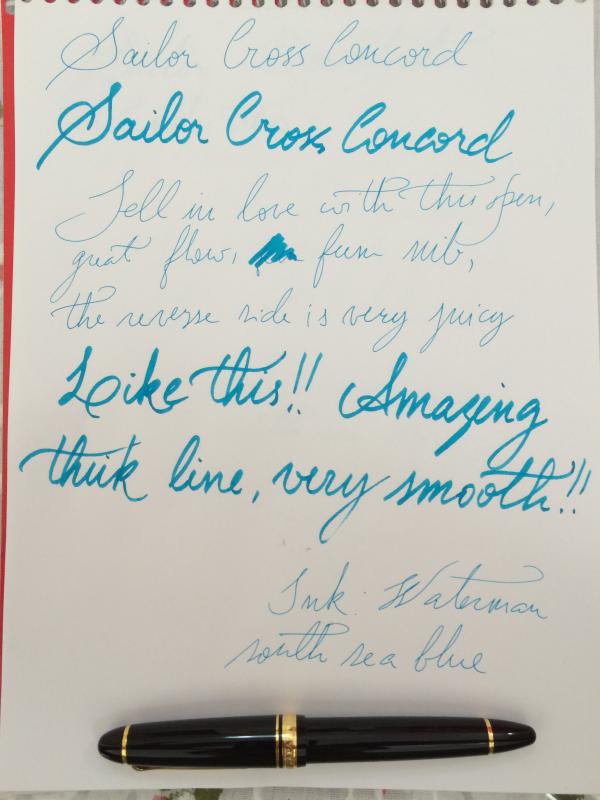 Sailor Cross Concord
Sailor Cross Concord
Fell in love with this pen,
great flow, firm nib,
the reverse side is very juicy
Like this!! Amazing
thick line, very smooth!!
Ink: Waterman
south sea blue